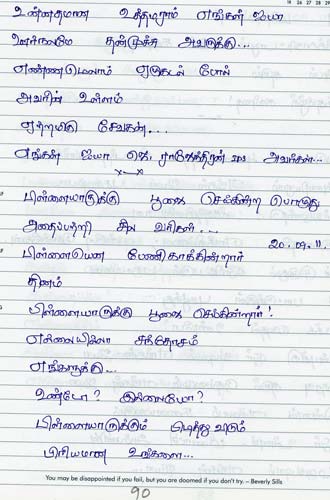 உன்னதமான உத்தமராம் எங்கள் ஐயா
ஊர்வலமே தன்முகச்ச அவருக்கு...
எண்ணமெலாம் ஏழுகடல் போல்
அவரின் உள்ளம்
ஏற்றமிகு சேவகன்...
எங்கள் ஐயா கெ. ராஜேந்திரன் அவர்கள்...
பிள்ளையாருக்கு பூஜை செய்கின்ற பொழுது
அதைப்பற்றி சில வரிகள்...
20.09.11.
பிள்ளையென பேணிகாக்கின்றார்
தினம்
பிள்ளையாருக்கு பூஜை செய்கின்றார்!
எல்லையில்லா சந்தோசம்
எங்களுக்கு...
உண்டோ? இல்லையோ?
பிள்ளையாருக்கும் பிடித்து விடும்
பிரியமான உங்களை...
You may be disappointed if you fail, but you are doomed if you don't try. – Beverly Sills
90